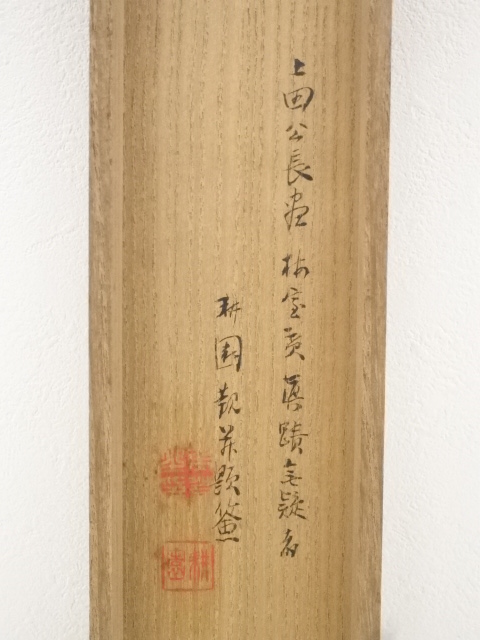 上田公長画 梅室賛 真蹟無疑者
耕園観并題簽
耕園